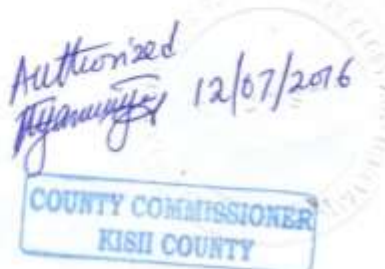 Authorized
12/07/2016
COUNTY COMMISSIONER
KISII COUNTY